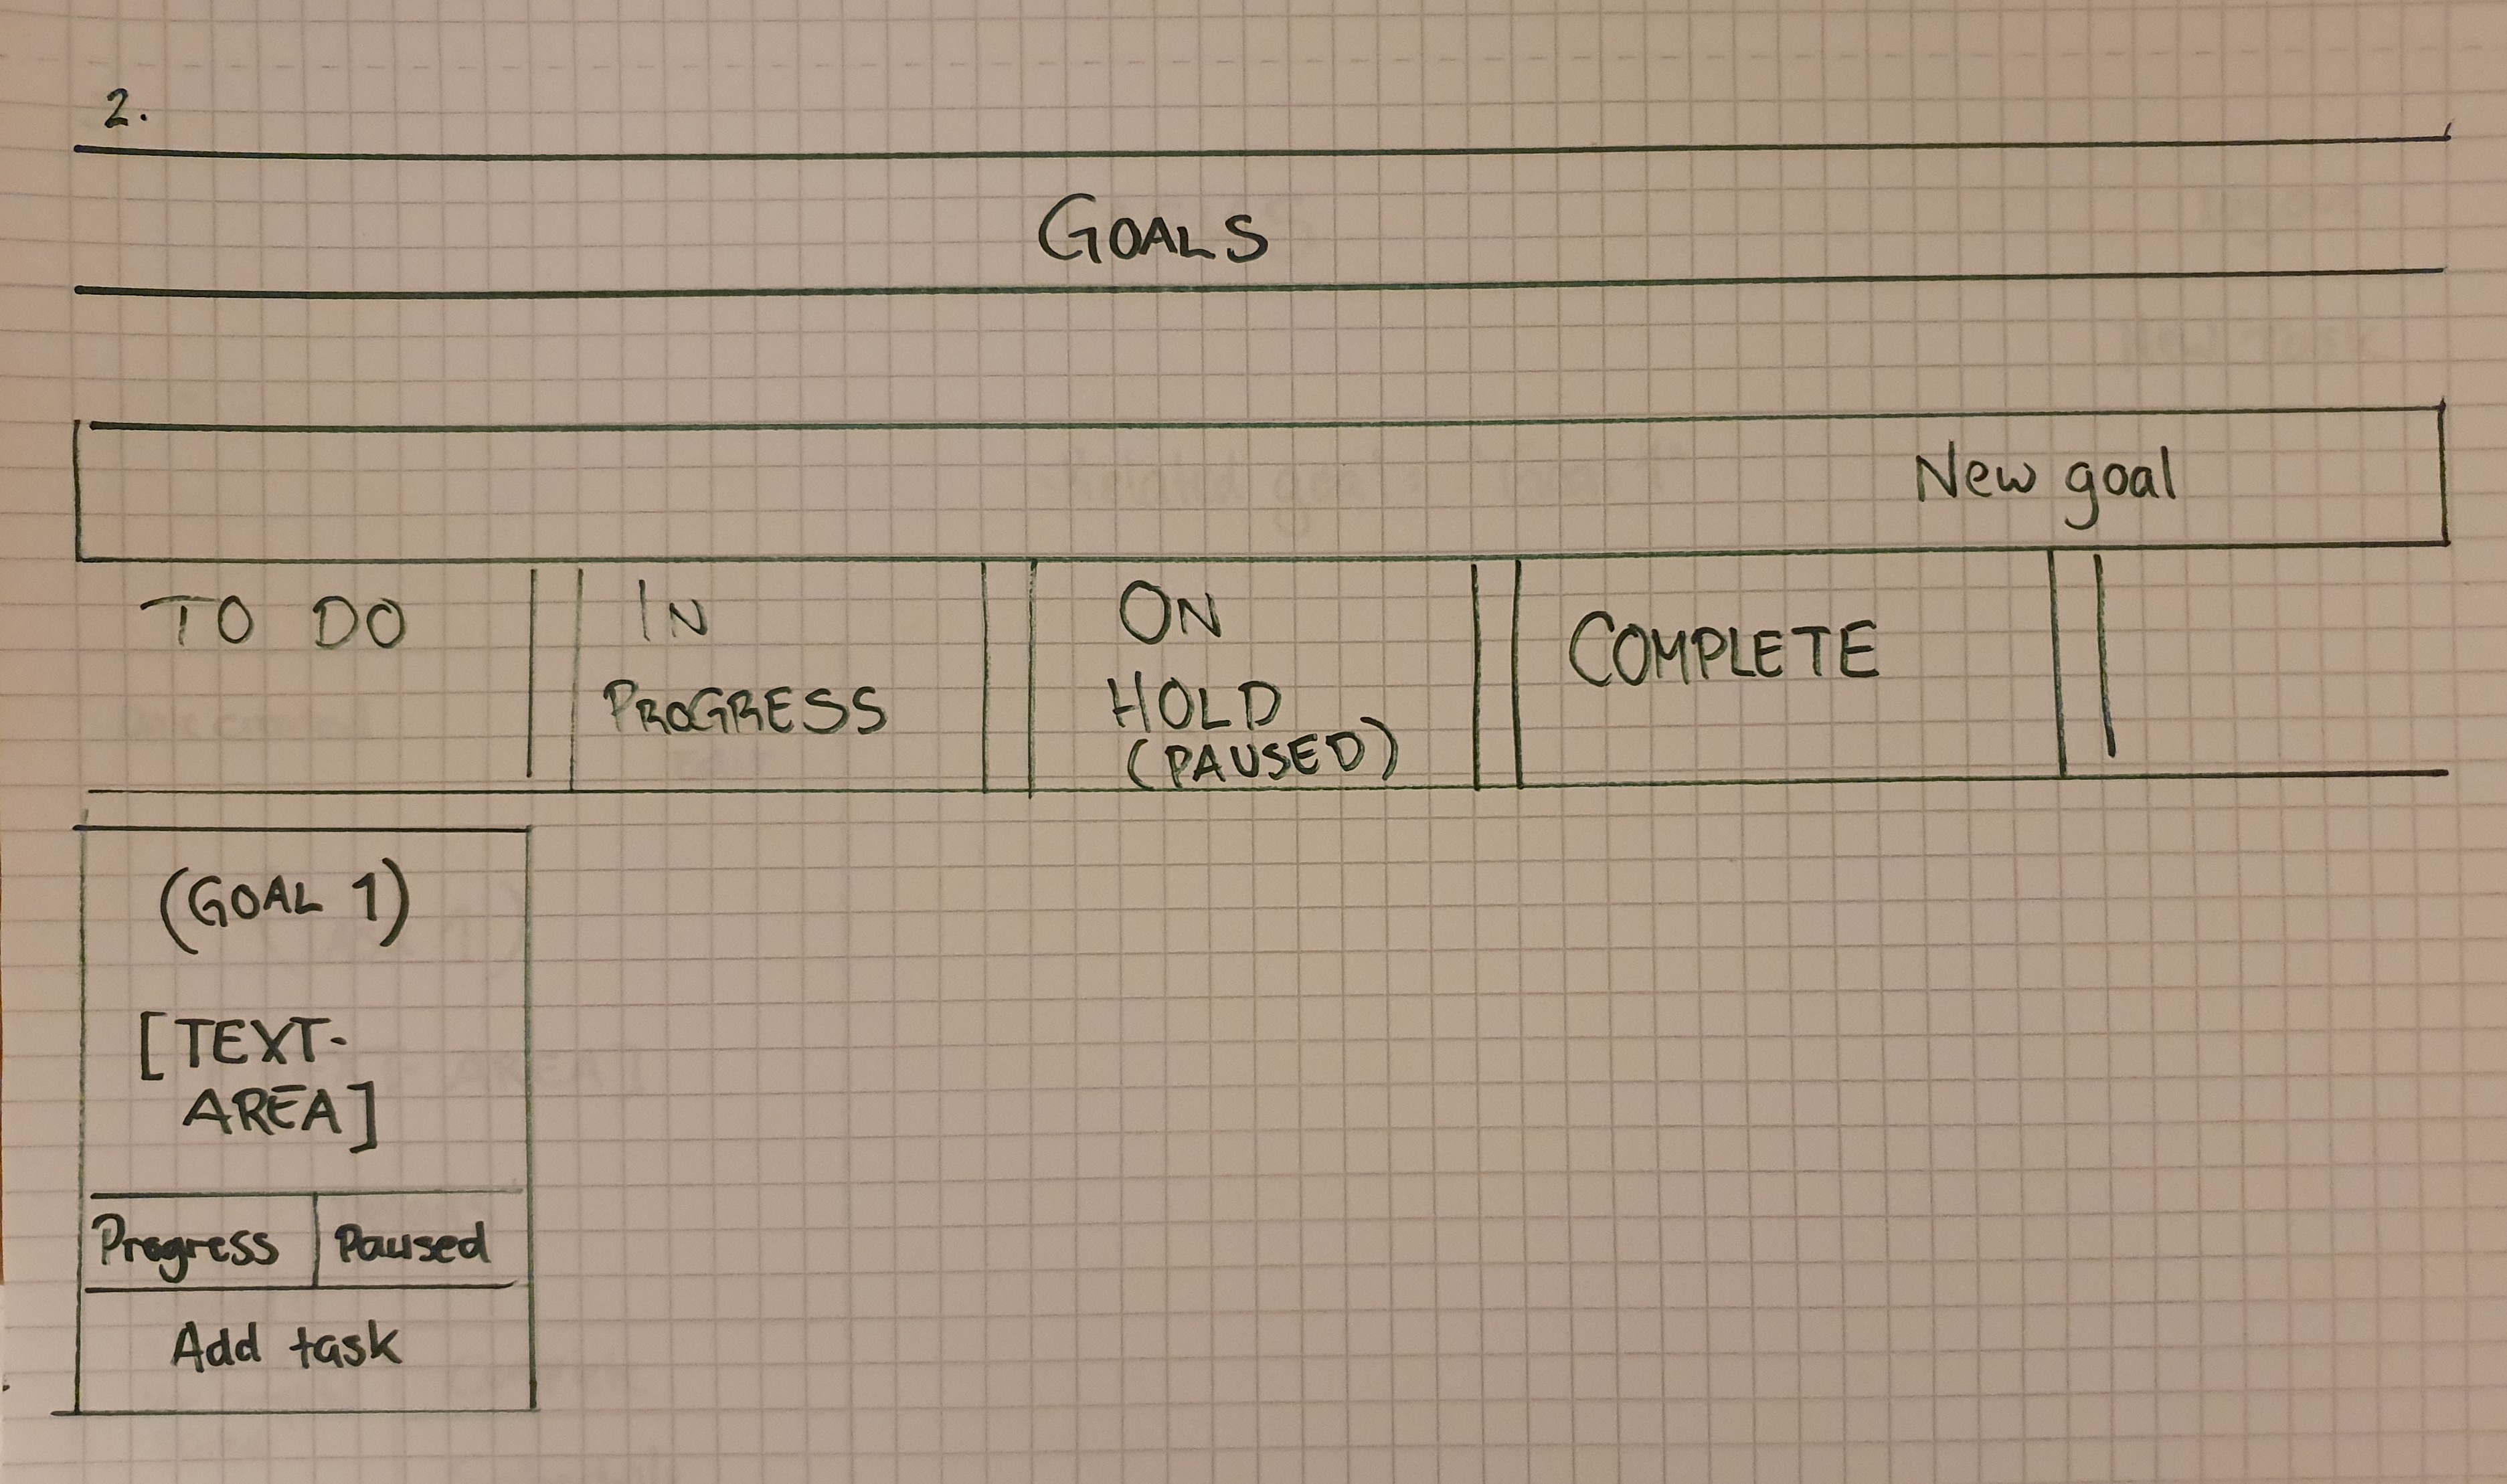 2.
GOALS
New goal
TO DO
IN
PROGRESS
ON
HOLD
(PAUSED)
COMPLETE
(GOAL 1)
[TEXT-
AREA]
Progress
Paused
Add task